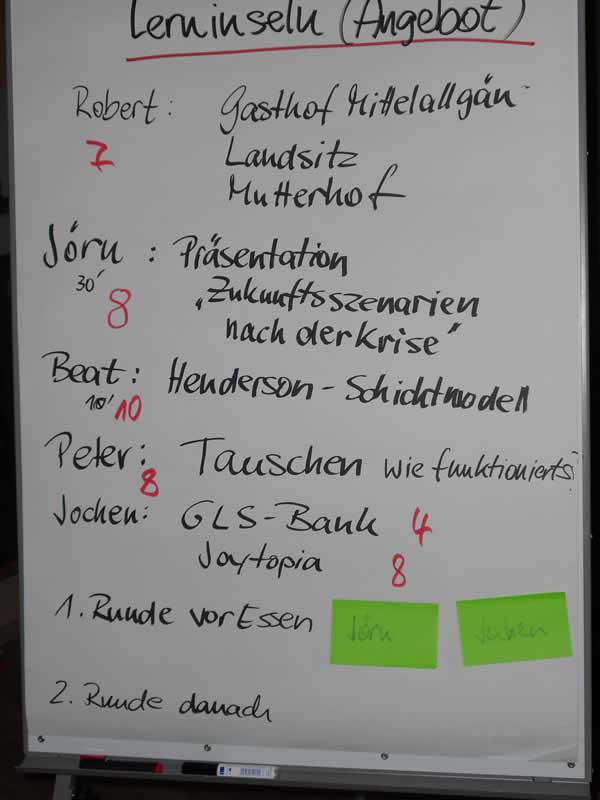 Lerninseln (Angebot)
Robert: Gasthof Mittelallgäu
7 Landsitz
Mutterhof
Jörn: Präsentation
30' 8 "Zukunftsszenarien
nach der Krise"
Beat: Henderson-Schichtmodell
10' 10
Peter: Tauschen wie funktionierts?
8
Jochen: GLS-Bank 4
Joytopia 8
1. Runde vor Essen Jörn Jochen
2. Runde danach